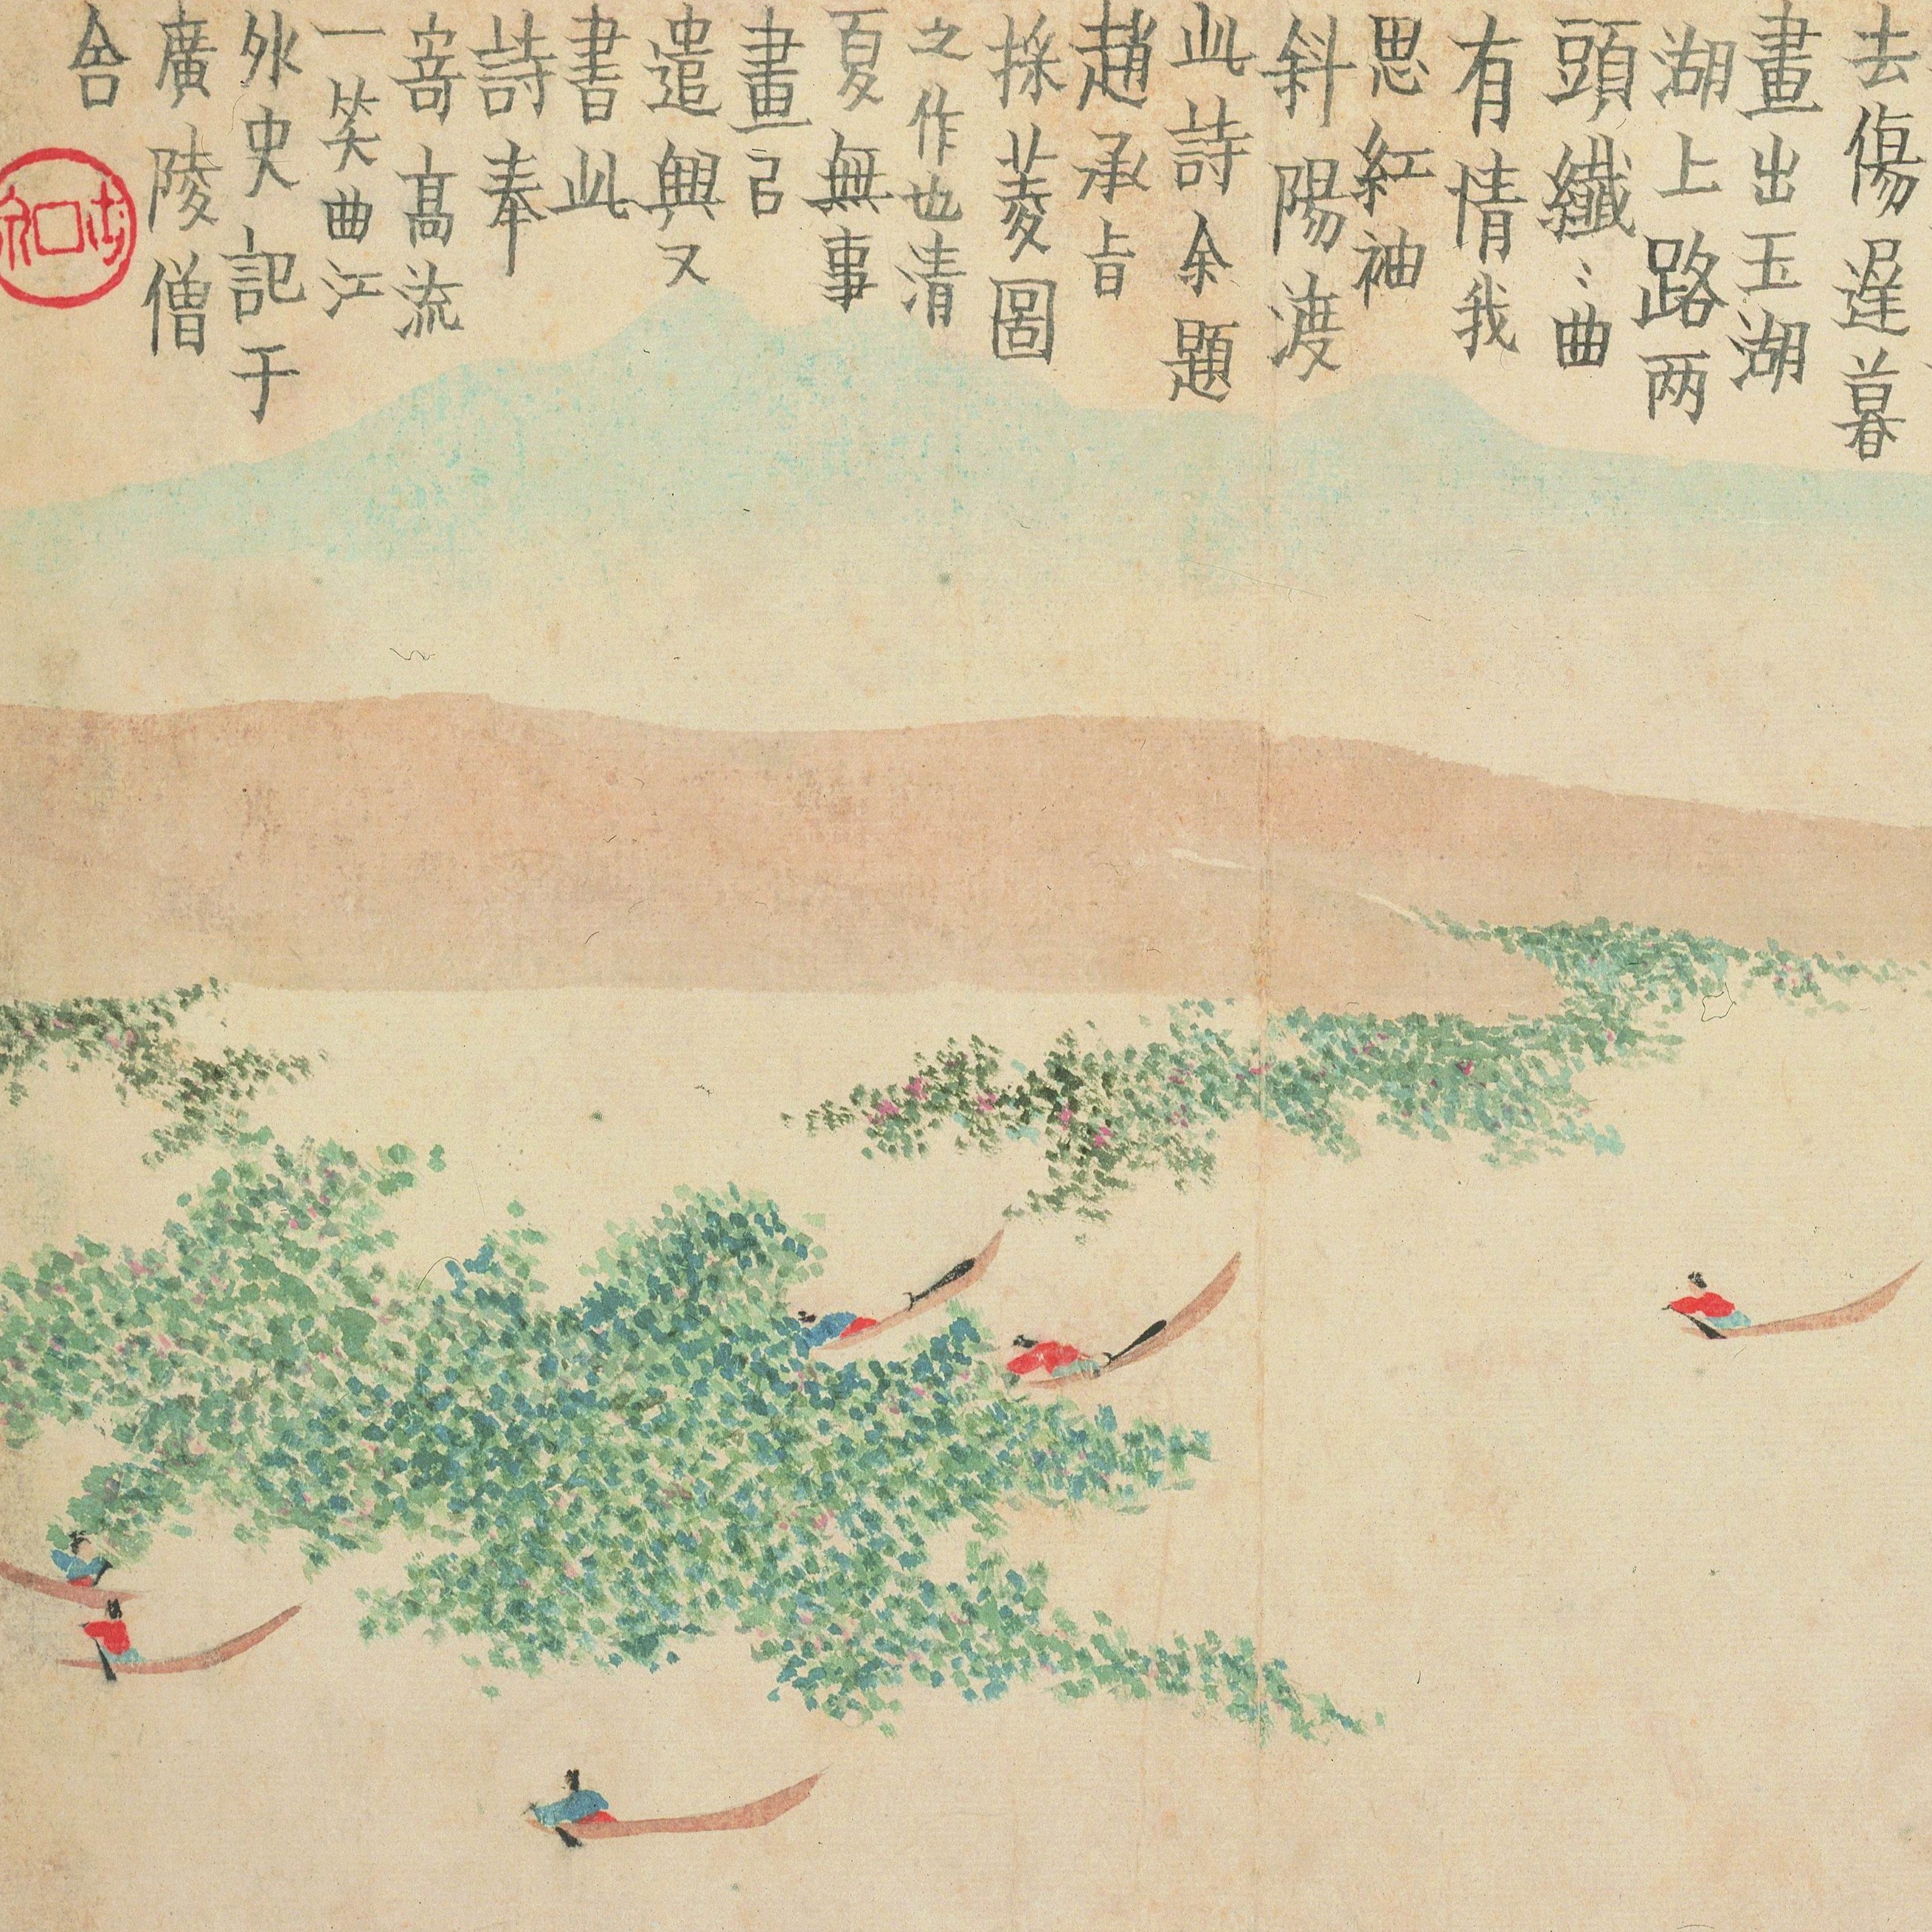 去傷遲暮
畫出玉湖
湖上路两
頭纖〻曲
有情我
思紅袖
斜陽渡
此詩余題
趙承旨
採菱圖
之作也清
夏無事
畫已
遣興又
書此
詩奉
寄高流
一笑曲江
外史記于
廣陵僧
舍